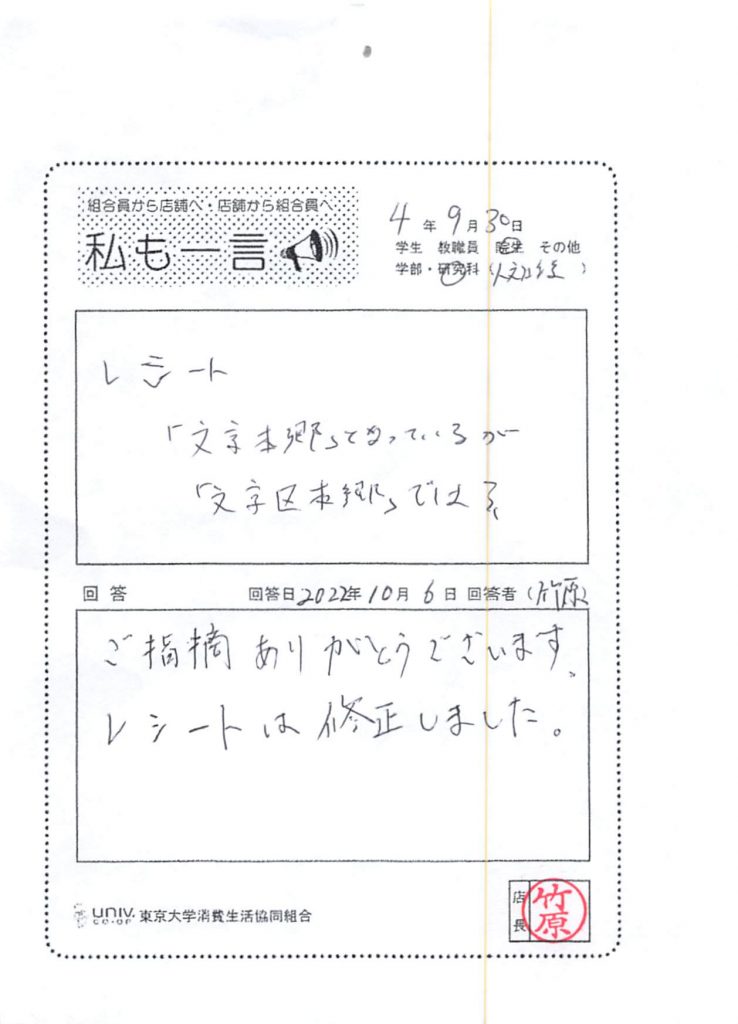 組合員から店舗へ・店舗から組合員へ
私も一言
4年9月30日
学生 教職員 院生 その他
学部・研究科 ( )
レシート
「文京本郷」となっているが
「文京区本郷」では?
回答 回答日2022年10月6日 回答者(竹原)
ご指摘ありがとうございます。
レシートは修正しました。
UNIV.
CO-OP
東京大学消費生活協同組合
店長
竹原